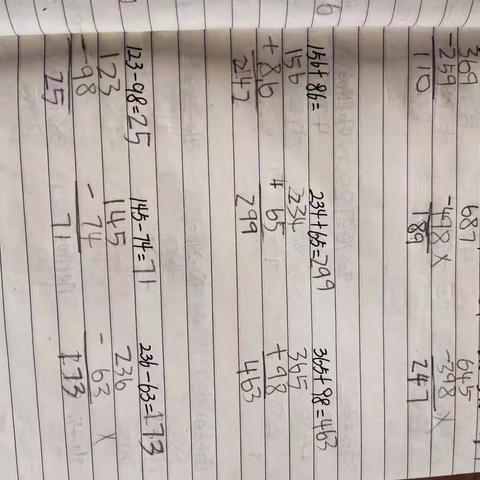 369 687 645
-259 -498 × -398 ×
110 189 247
156+86= 234+65=299 365+98=463
156 234 365
+86 + 65 +98
242 299 463
123-98=25 145-74=71 236-63=173
123 145 236
-98 - 74 - 63 ×
25 71 173